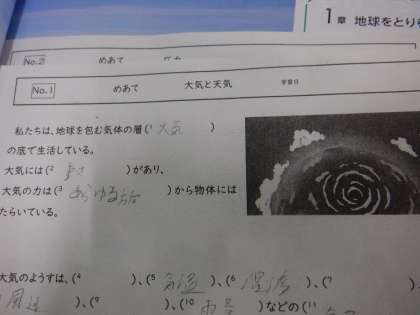 1章 地球をとりま
No.2 めあて
No.1 めあて 大気と天気 学習日
私たちは、地球を包む気体の層(1 大気 )
の底で生活している。
大気には(2 重さ )があり、
大気の力は(3 あらゆる方向 )から物体には
たらいている。
大気のようすは、(4 )、(5 気温 )、(6 湿度 )、(7
風速 )、(9 )、(10 雨量 )などの(11